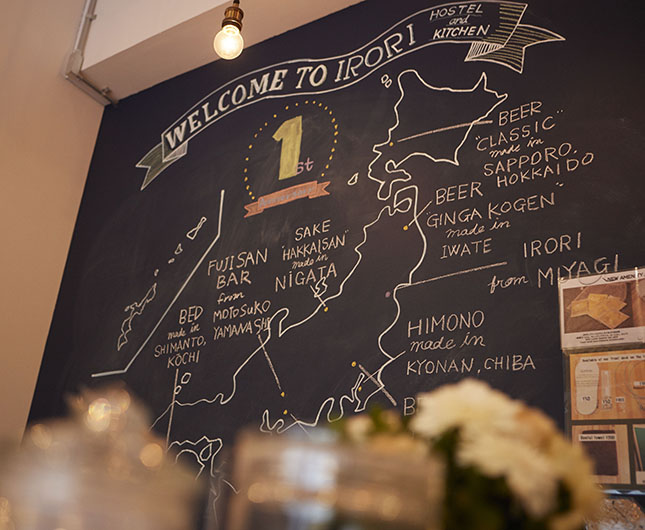 WELCOME TO IRORI HOSTEL and KITCHEN
1st
BEER
"CLASSIC"
made in
SAPPORO,
HOKKAIDO
BEER
"GINGA KOGEN"
made in
IWATE
IRORI
from MIYAGI
SAKE
"HAKKAISAN"
made in
NIGATA
FUJISAN
BAR
from
MOTOSUKO
YAMANASHI
BED
made in
SHIMANTO,
KOCHI
HIMONO
made in
KYONAN, CHIBA